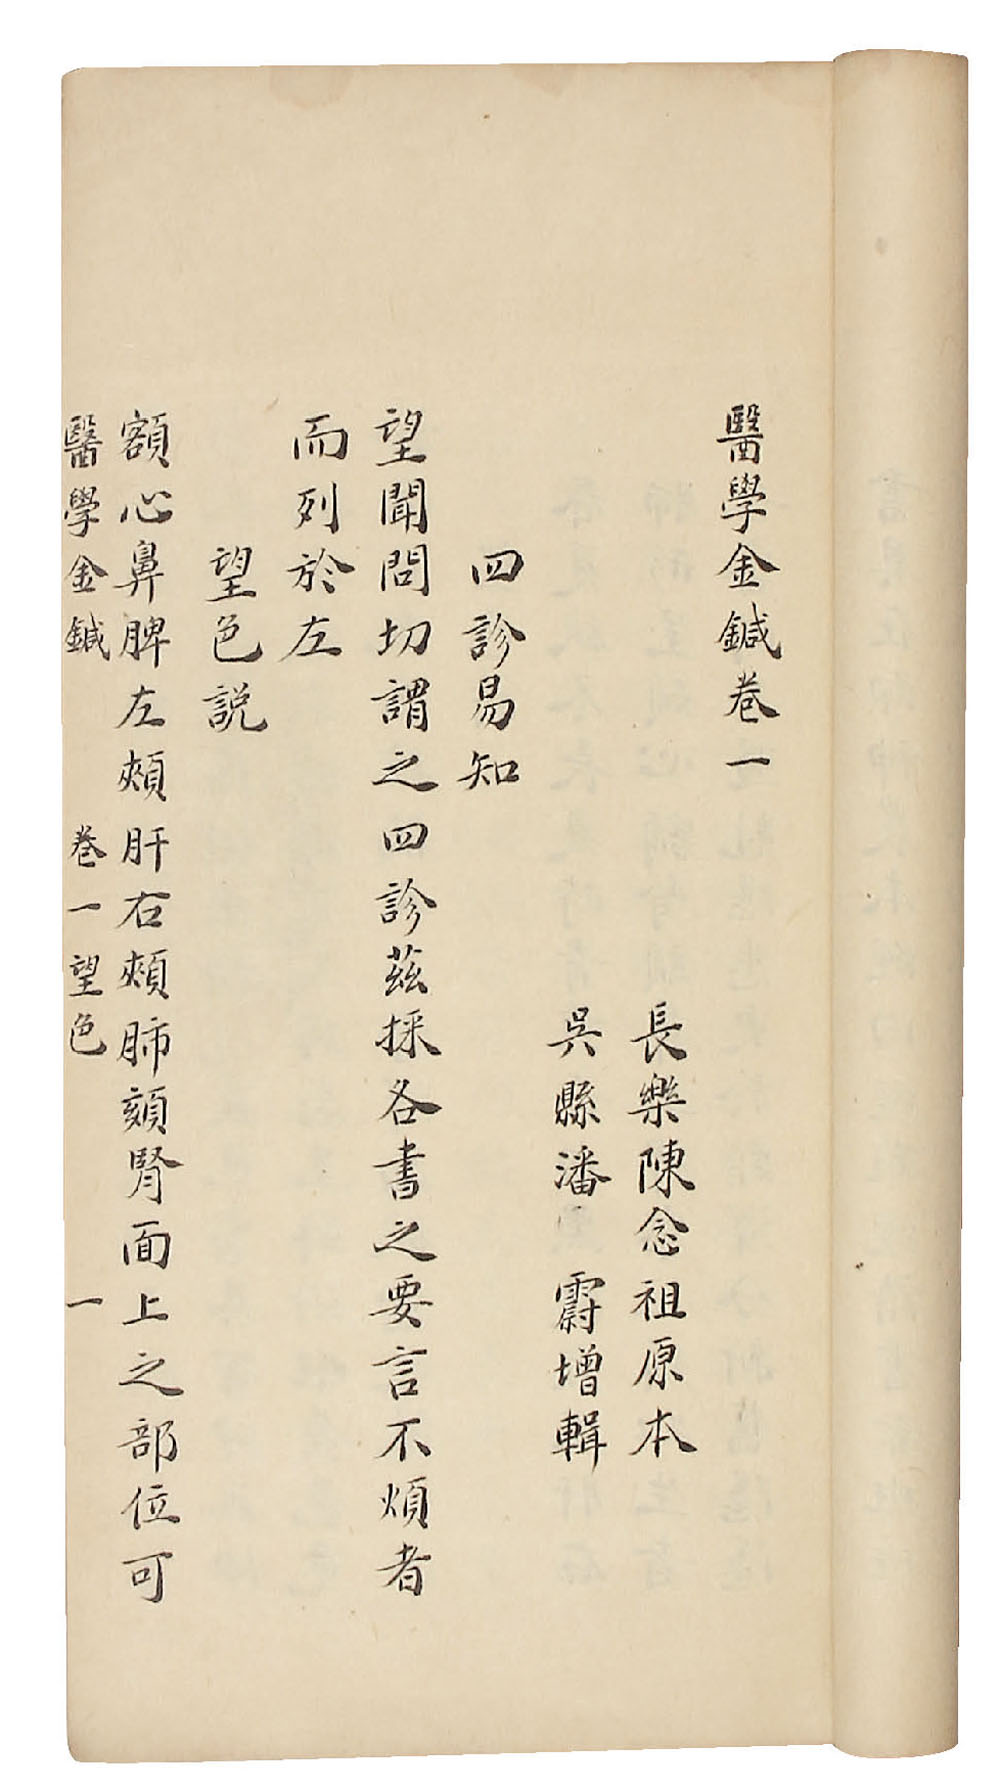 醫學金鍼卷一
長樂陳念祖原本
吳縣潘霨增輯
四診易知
望聞問切謂之四診茲採各書之要言不煩者
而列於左
望色說
額心鼻脾左頰肝右頰肺頦腎面上之部位可
醫學金鍼 卷一望色 一